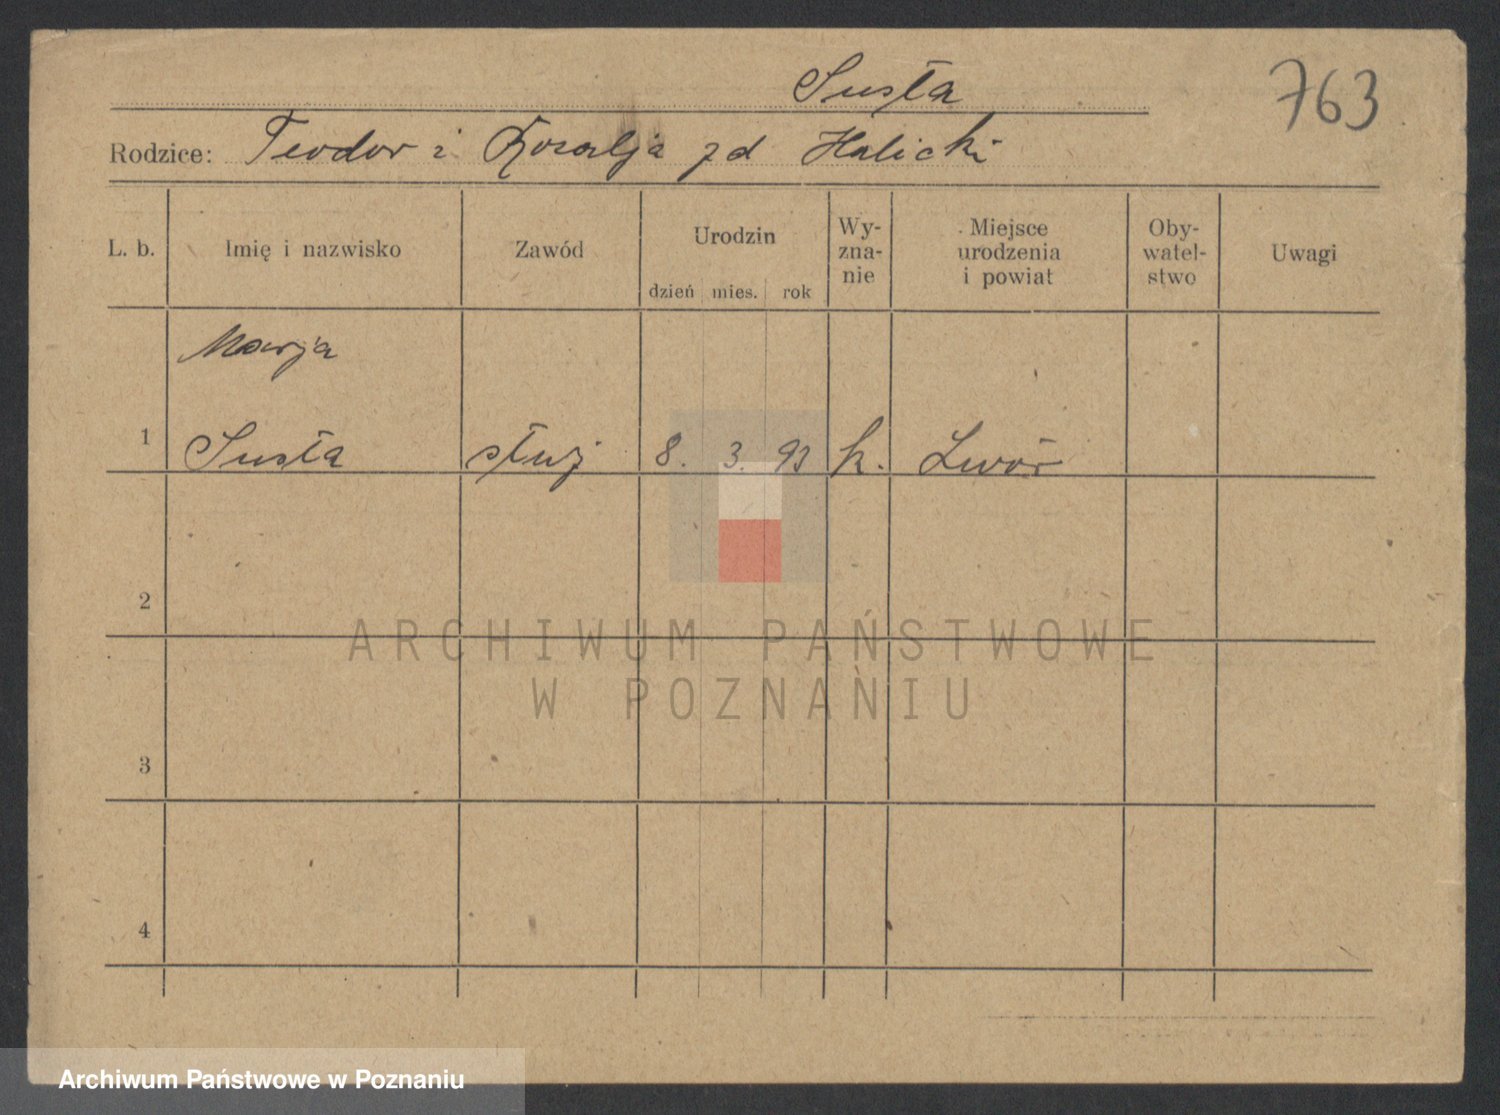 Susła
763
Rodzice: Teodor i Rozalja zd Halicki
L. b. Imię i nazwisko Zawód Urodzin dzień mies. rok Wy-zna-nie Miejsce urodzenia i powiat Oby-watel-stwo Uwagi
Marja
1 Susła służ 8. 3. 93 k. Lwów
2
ARCHIWUM PAŃSTWOWE
W POZNANIU
3
4
Archiwum Państwowe w Poznaniu